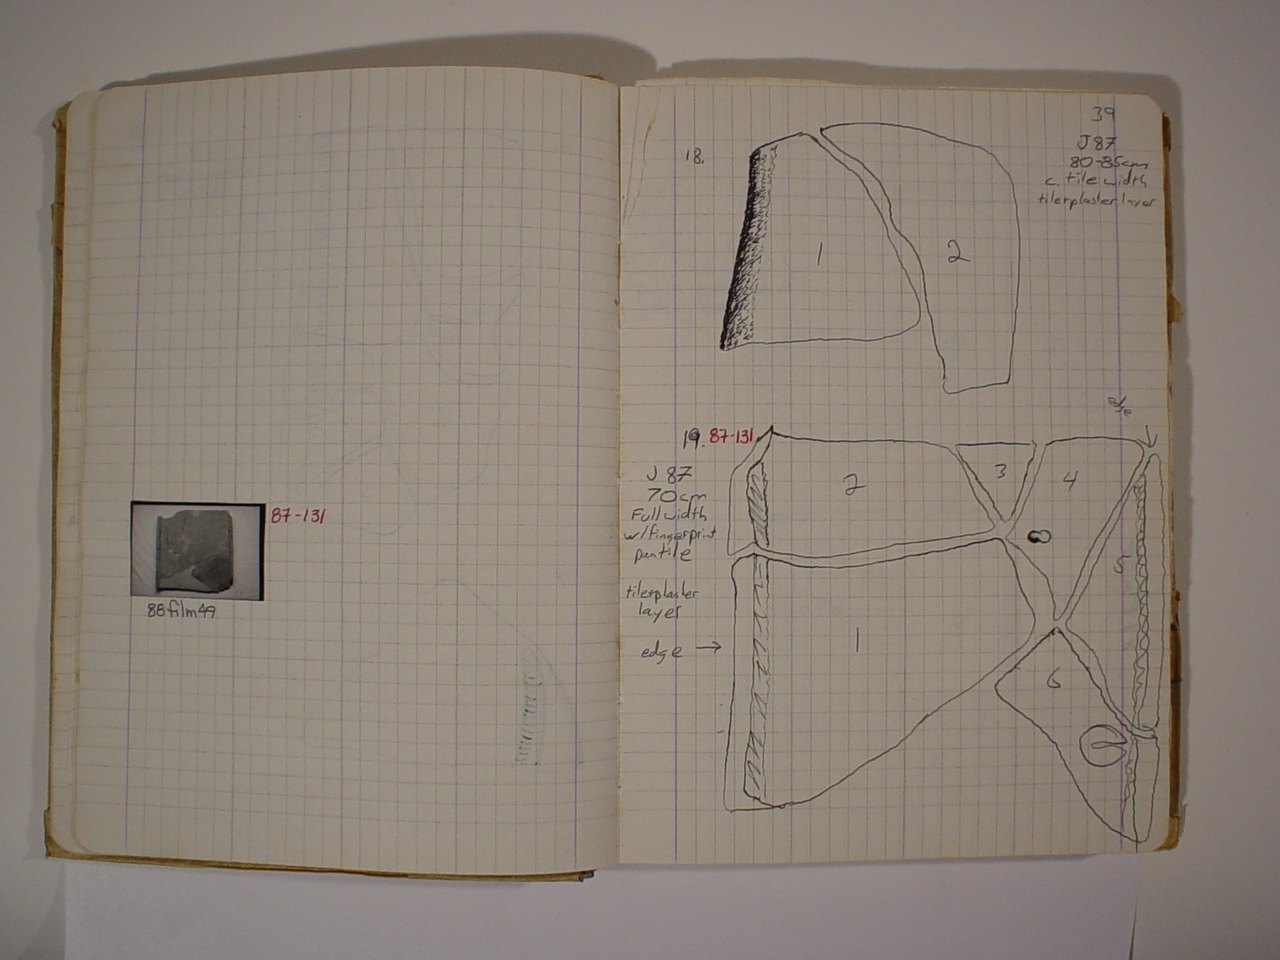 87-131
88film49
39
J 87
80-85cm
c. tile width
tile+plaster layer
18.
1
2
edge
19. 87-131
J 87
70cm
Full width
w/fingerprint
pan tile
tile+plaster
layer
edge →
2
3
4
8
5
1
6